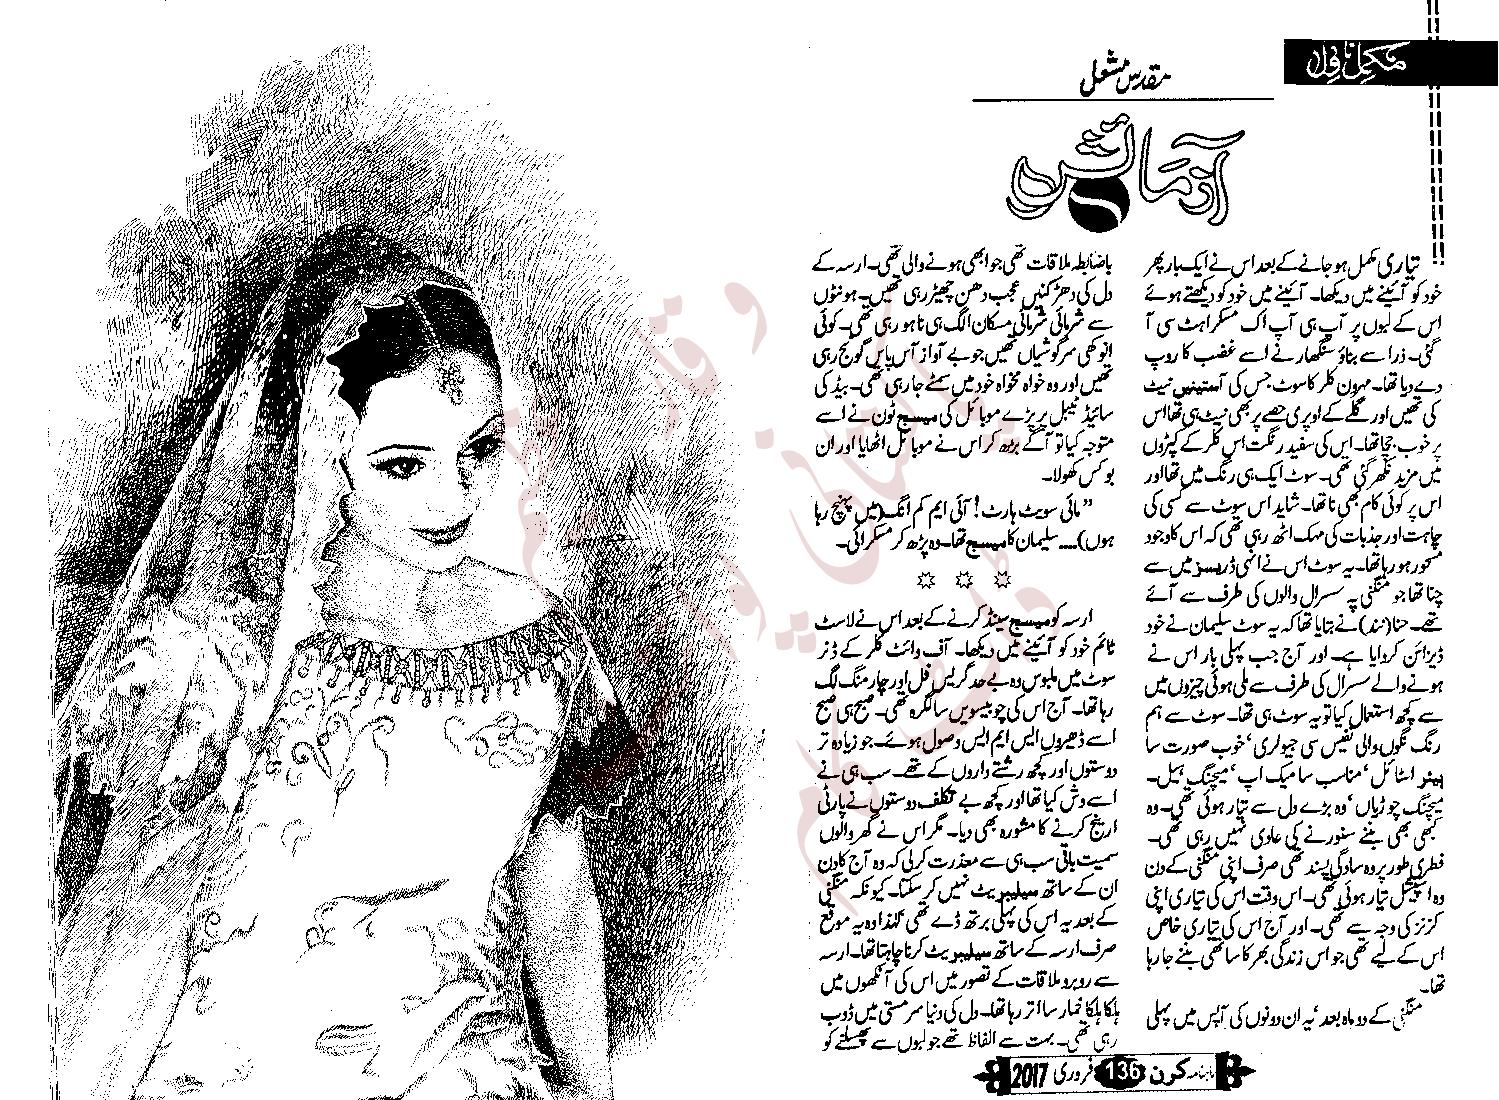 مکمل ناول
مقدس مشعل
آزمائش
تیاری مکمل ہو جانے کے بعد اس نے ایک بار پھر
خود کو آئینے میں دیکھا۔ آئینے میں خود کو دیکھتے ہوئے
اس کے لبوں پر آپ ہی آپ اک مسکراہٹ سی آ
گئی۔ ذرا سے بناؤ سنگھار نے اسے غضب کا روپ
دے دیا تھا۔ مہرون کلر کا سوٹ جس کی آستینیں نیٹ
کی تھیں اور گلے کے اوپری حصے پر بھی نیٹ ہی تھا اس
پر خوب جچا تھا۔ اس کی سفید رنگت اس کلر کے کپڑوں
میں مزید نکھر گئی تھی۔ سوٹ ایک ہی رنگ میں تھا اور
اس پر کوئی کام بھی نا تھا۔ شاید اس سوٹ سے کسی کی
چاہت اور جذبات کی مہک اٹھ رہی تھی کہ اس کا وجود
مسحور ہو رہا تھا۔ یہ سوٹ اس نے انہی ڈریسز میں سے
چنا تھا جو منگنی پہ سسرال والوں کی طرف سے آئے
تھے۔ حنا (نند) نے بتایا تھا کہ یہ سوٹ سلیمان نے خود
ڈیزائن کروایا ہے۔ اور آج جب پہلی بار اس نے
ہونے والے سسرال کی طرف سے ملی ہوئی چیزوں میں
سے کچھ استعمال کیا تو یہ سوٹ ہی تھا۔ سوٹ سے ہم
رنگ نگوں والی نفیس سی جیولری‘ خوب صورت سا
ہیئر اسٹائل‘ مناسب سا میک اپ‘ میچنگ ہیل۔
میچنگ چوڑیاں‘ وہ بڑے دل سے تیار ہوئی تھی۔ وہ
کبھی بھی بننے سنورنے کی عادی نہیں رہی تھی۔
فطری طور پر وہ سادگی پسند تھی صرف اپنی منگنی کے دن
وہ اسپیشل تیار ہوئی تھی۔ اس وقت اس کی تیاری اپنی
کزنز کی وجہ سے تھی۔ اور آج اس کی تیاری خاص
اس کے لیے تھی جو اس زندگی بھر کا ساتھی بننے جا رہا
تھا۔
منگنی کے دو ماہ بعد‘ یہ ان دونوں کی آپس میں پہلی
باضابطہ ملاقات تھی جو ابھی ہونے والی تھی۔ ارسہ کے
دل کی دھڑکنیں عجب دھن چھیڑ رہی تھیں۔ ہونٹوں
سے شرمائی شرمائی مسکان الگ ہی نا ہو رہی تھی۔ کوئی
انوکھی سرگوشیاں تھیں جو بے آواز آس پاس گونج رہی
تھیں اور وہ خواہ مخواہ خود میں سمٹے جا رہی تھی۔ بیڈ کی
سائیڈ ٹیبل پر پڑے موبائل کی میسج ٹون نے اسے
متوجہ کیا تو آگے بڑھ کر اس نے موبائل اٹھایا اور ان
بوکس کھولا۔
”مائی سویٹ ہارٹ! آئی ایم کم انگ (میں پہنچ رہا
ہوں).... سلیمان کا میسج تھا۔ وہ پڑھ کر مسکرائی۔
ارسہ کو میسج سینڈ کرنے کے بعد اس نے لاسٹ
ٹائم خود کو آئینے میں دیکھا۔ آف وائٹ کلر کے ڈنر
سوٹ میں ملبوس وہ بے حد گریس فل اور چارمنگ لگ
رہا تھا۔ آج اس کی چوبیسویں سالگرہ تھی۔ صبح ہی صبح
اسے ڈھیروں ایس ایم ایس وصول ہوئے۔ جو زیادہ تر
دوستوں اور کچھ رشتے داروں کے تھے۔ سب ہی نے
اسے وش کیا تھا اور کچھ بے تکلف دوستوں نے پارٹی
ارینج کرنے کا مشورہ بھی دیا۔ مگر اس نے گھر والوں
سمیت باقی سب ہی سے معذرت کر لی کہ وہ آج کا دن
ان کے ساتھ سیلیبریٹ نہیں کر سکتا۔ کیونکہ منگنی
کے بعد یہ اس کی پہلی برتھ ڈے تھی لہٰذا وہ یہ موقع
صرف ارسہ کے ساتھ سیلیبریٹ کرنا چاہتا تھا۔ ارسہ
سے روبرو ملاقات کے تصور میں اس کی آنکھوں میں
ہلکا ہلکا خمار سا اتر رہا تھا۔ دل کی دنیا سرمستی میں ڈوب
رہی تھی۔ بہت سے الفاظ تھے جو لبوں سے پھسلنے کو
ماہنامہ کرن 136 فروری 2017